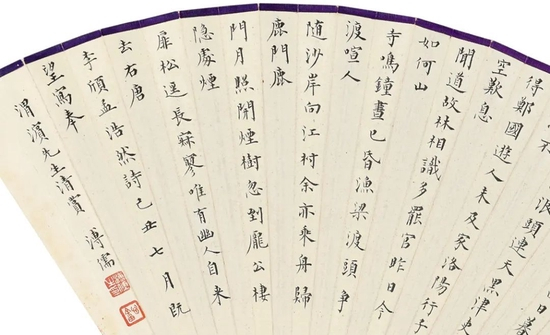 日暮
浪頭連天黑津吏
不
得鄭國遊人未及家洛陽行子
空歎息
聞道故林相識多罷官昨日今
如何山
寺鳴鐘晝已昏漁梁渡頭爭
渡喧人
隨沙岸向江村余亦乘舟歸
鹿門鹿
門月照開煙樹忽到龐公棲
隱處煙
扉松逕長寂寥唯有幽人自来
去右唐
李頎孟浩然詩己丑七月既
望寫奉
渭濱先生清賞 溥儒